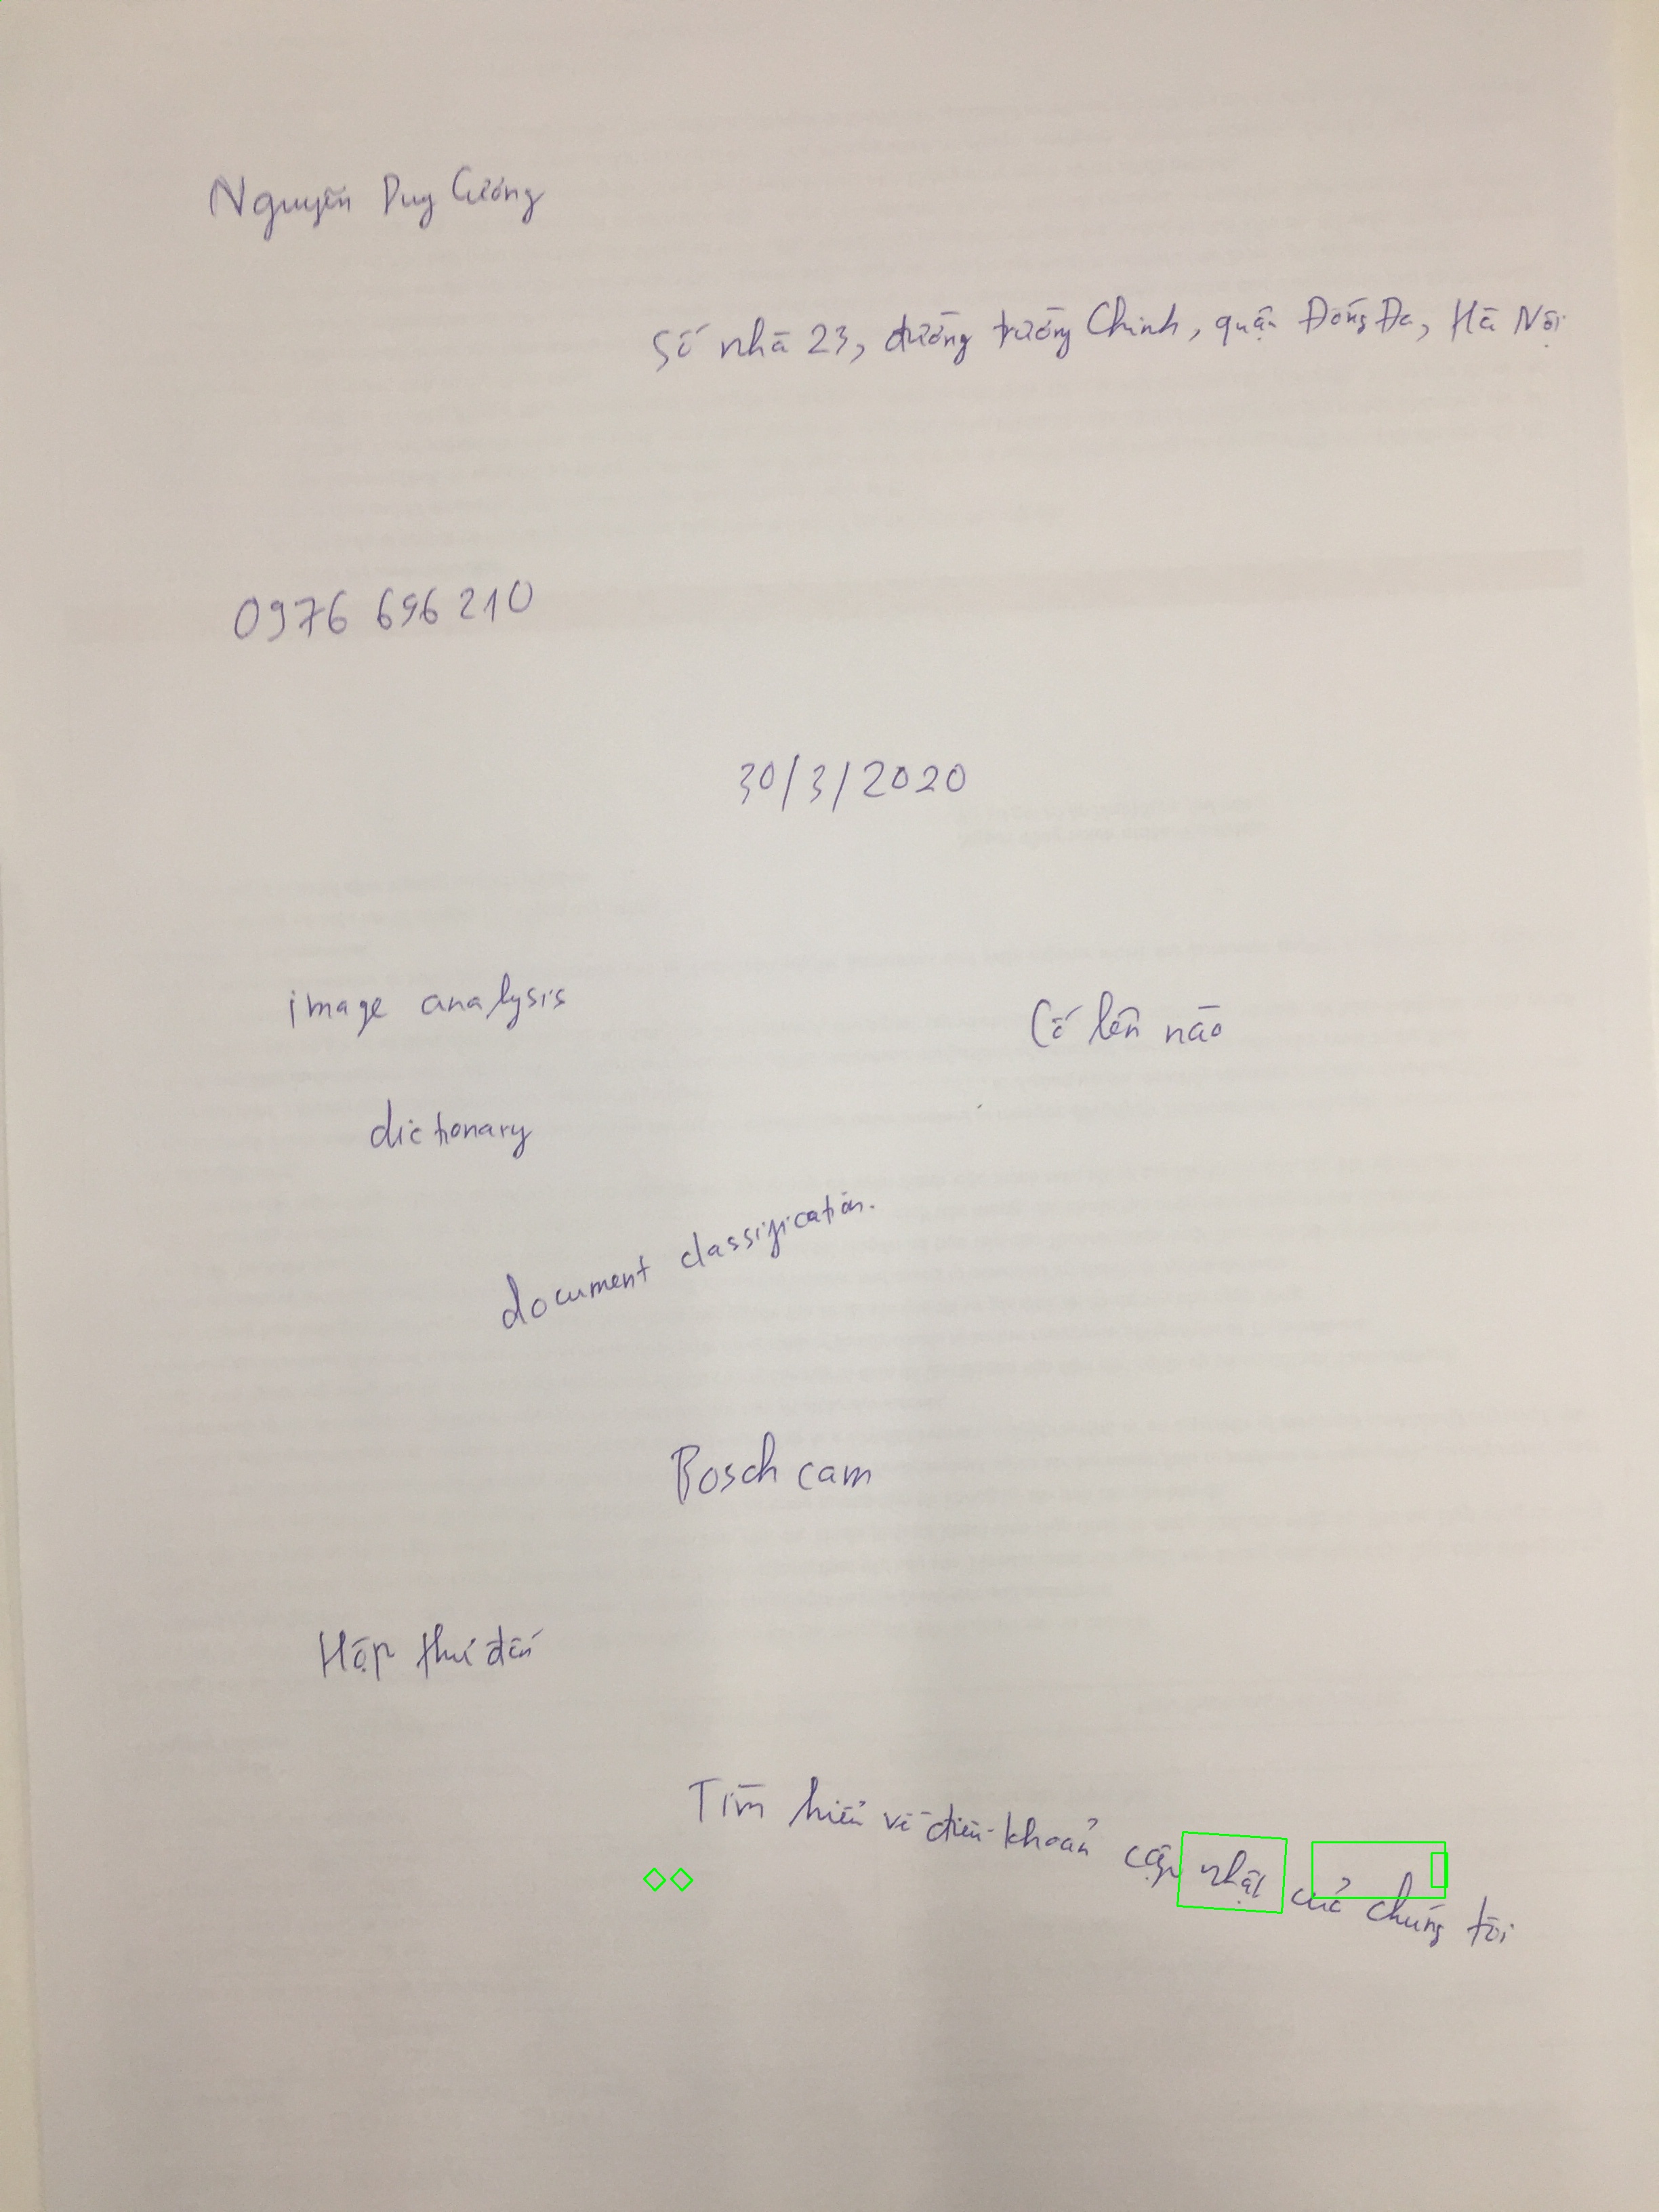 Nguyễn Duy Cường
Số nhà 23, đường trường Chinh, quận Đống Đa, Hà Nội
0976 696 210
30/3/2020
image analysis
Cố lên nào
dictionary
document classification.
Bosch cam
Hộp thư đến
Tìm hiểu về điều khoản cập nhật của chúng tôi